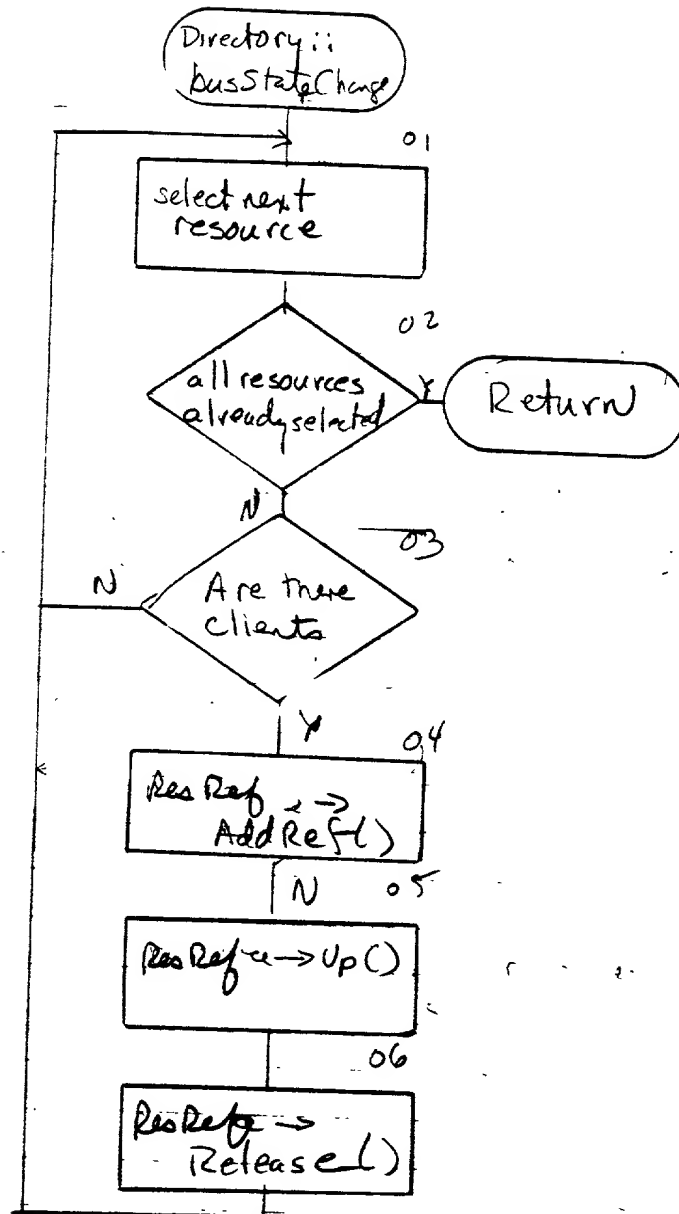 Directory::
busStateChange
01
select next
resource
02
all resources
already selected
Y
Return
N
03
N
Are there
clients
Y
04
ResRef →
AddRef()
N
05
ResRef → Up()
06
ResRef →
Release()